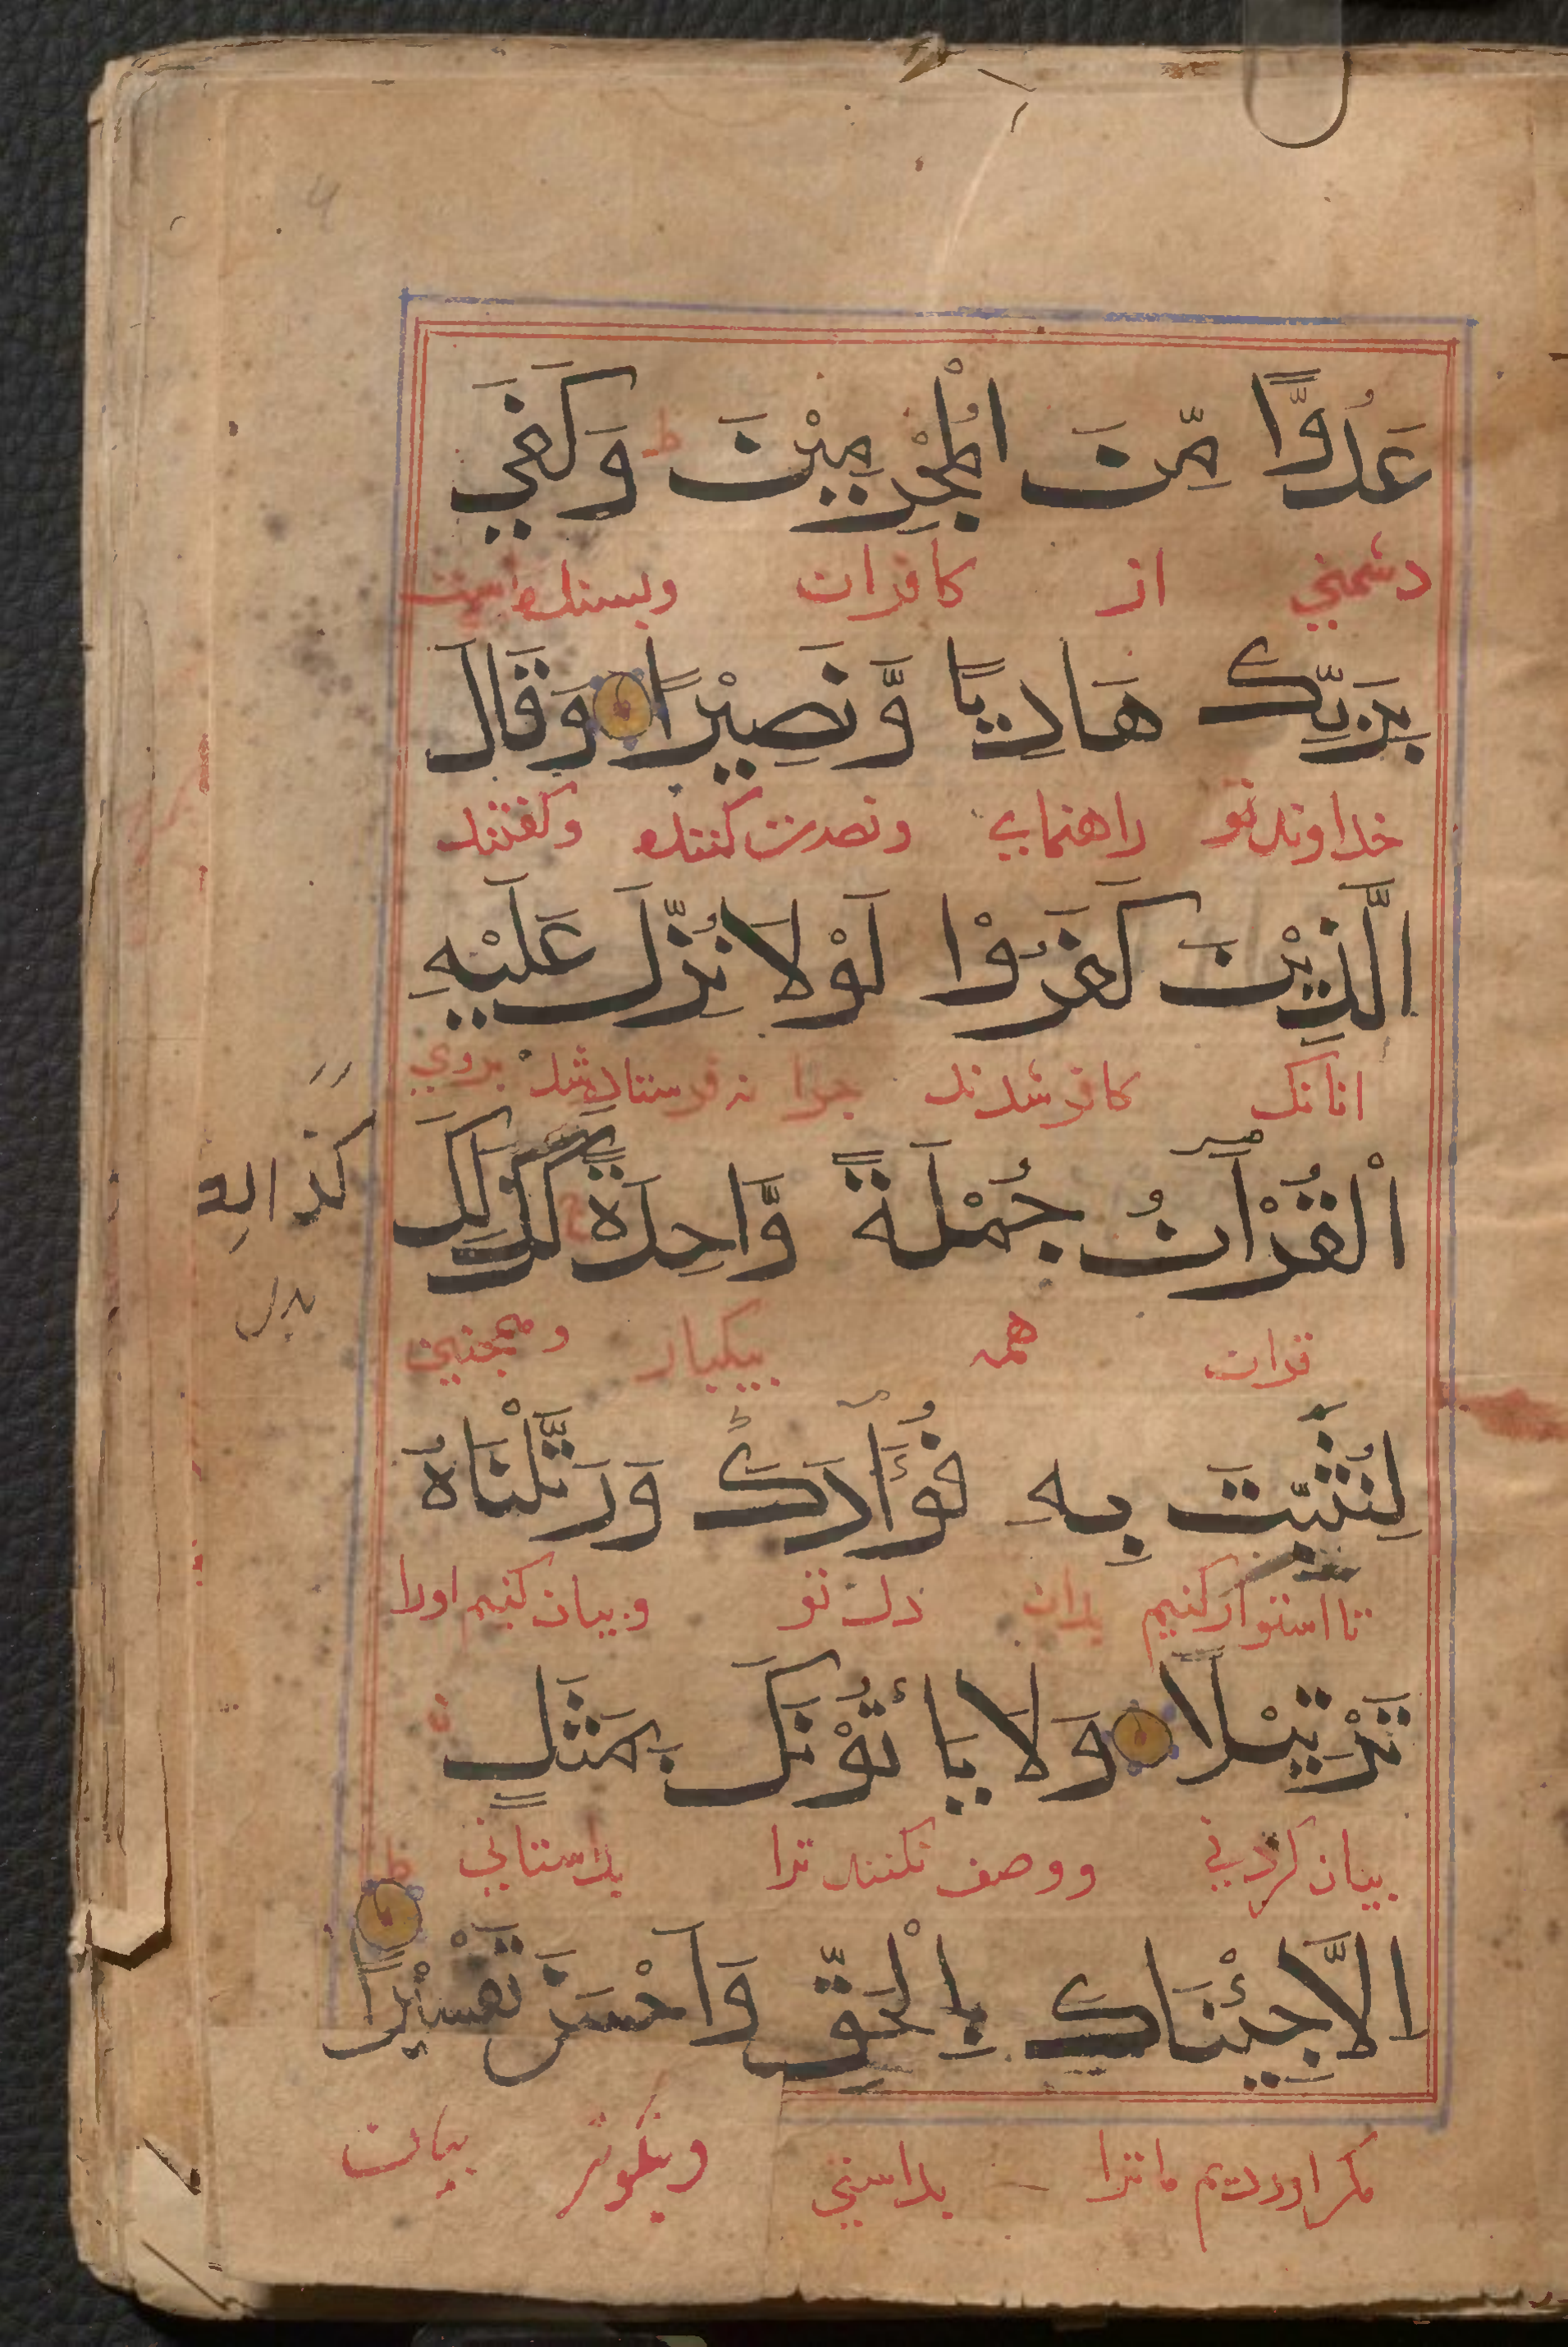 عَدُوًّا مِّنَ الْمُجْرِمِيْنَ ط وَكَفَي
دشمني از كافران وبسنده است
بِرَبِّكَ هَادِيًا وَّنَصِيْرًا وَقَالَ
خداوند تو راهنماي ونصرت كننده وكفتند
الَّذِيْنَ كَفَرُوْا لَوْلَا نُزِّلَ عَلَيْهِ
انانك كافر شدند چرا نه فرستاده شد بروي
الْقُرْآنُ جُمْلَةً وَّاحِدَةً كَذَلِكَ
كذالك
بدل
قران همه بيكبار وهمچنين
لِنُثَبِّتَ بِهِ فُؤَادَكَ وَرَتَّلْنَاهُ
تا استوار كنيم بدان دل تو وبيان كنيم اورا
تَرْتِيْلًا وَلَا يَأتُوْنَكَ بِمَثَلٍ
بيان كردني ووصف نكنند ترا بداستاني
اِلَّا جِئْنَاكَ بِالْحَقِّ وَاَحْسَنَ تَفْسِيْرًا ط
مكر اورديم ما ترا براستي ونيكوتر بيان